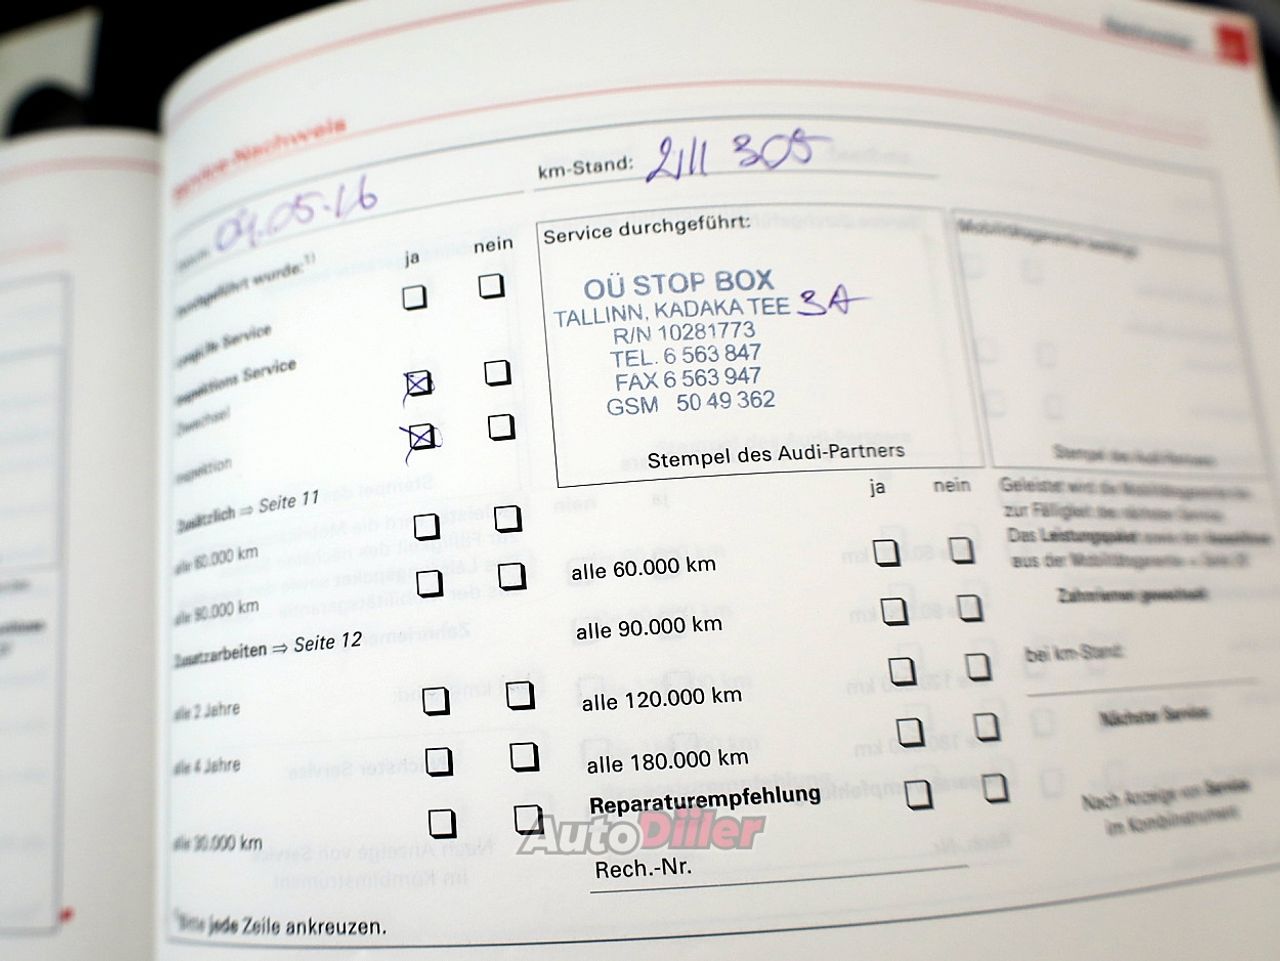 Service-Nachweis
04.05.16
km-Stand: 211 305
durchgeführt wurde:¹⁾
ja nein
Service durchgeführt:
OÜ STOP BOX
TALLINN, KADAKA TEE 3A
R/N 10281773
TEL. 6 563 847
FAX 6 563 947
GSM 50 49 362
Stempel des Audi-Partners
Service
Inspektions Service
Ölwechsel
Inspektion
Zusätzlich ⇒ Seite 11
alle 60.000 km
alle 90.000 km
Zusatzarbeiten ⇒ Seite 12
alle 2 Jahre
alle 4 Jahre
alle 30.000 km
ja nein
alle 60.000 km
alle 90.000 km
alle 120.000 km
alle 180.000 km
Reparaturempfehlung
Rech.-Nr.
Stempel des Audi-Partners
Geleistet wird die Mobilitätsgarantie bis
zur Fälligkeit des nächsten Service.
Das Leistungspaket sowie der
aus der Mobilitätsgarantie
Zahnriemen gewechselt
bei km-Stand:
Nächster Service
Nach Anzeige von Service
im Kombiinstrument
Bitte jede Zeile ankreuzen.
AutoDiiler